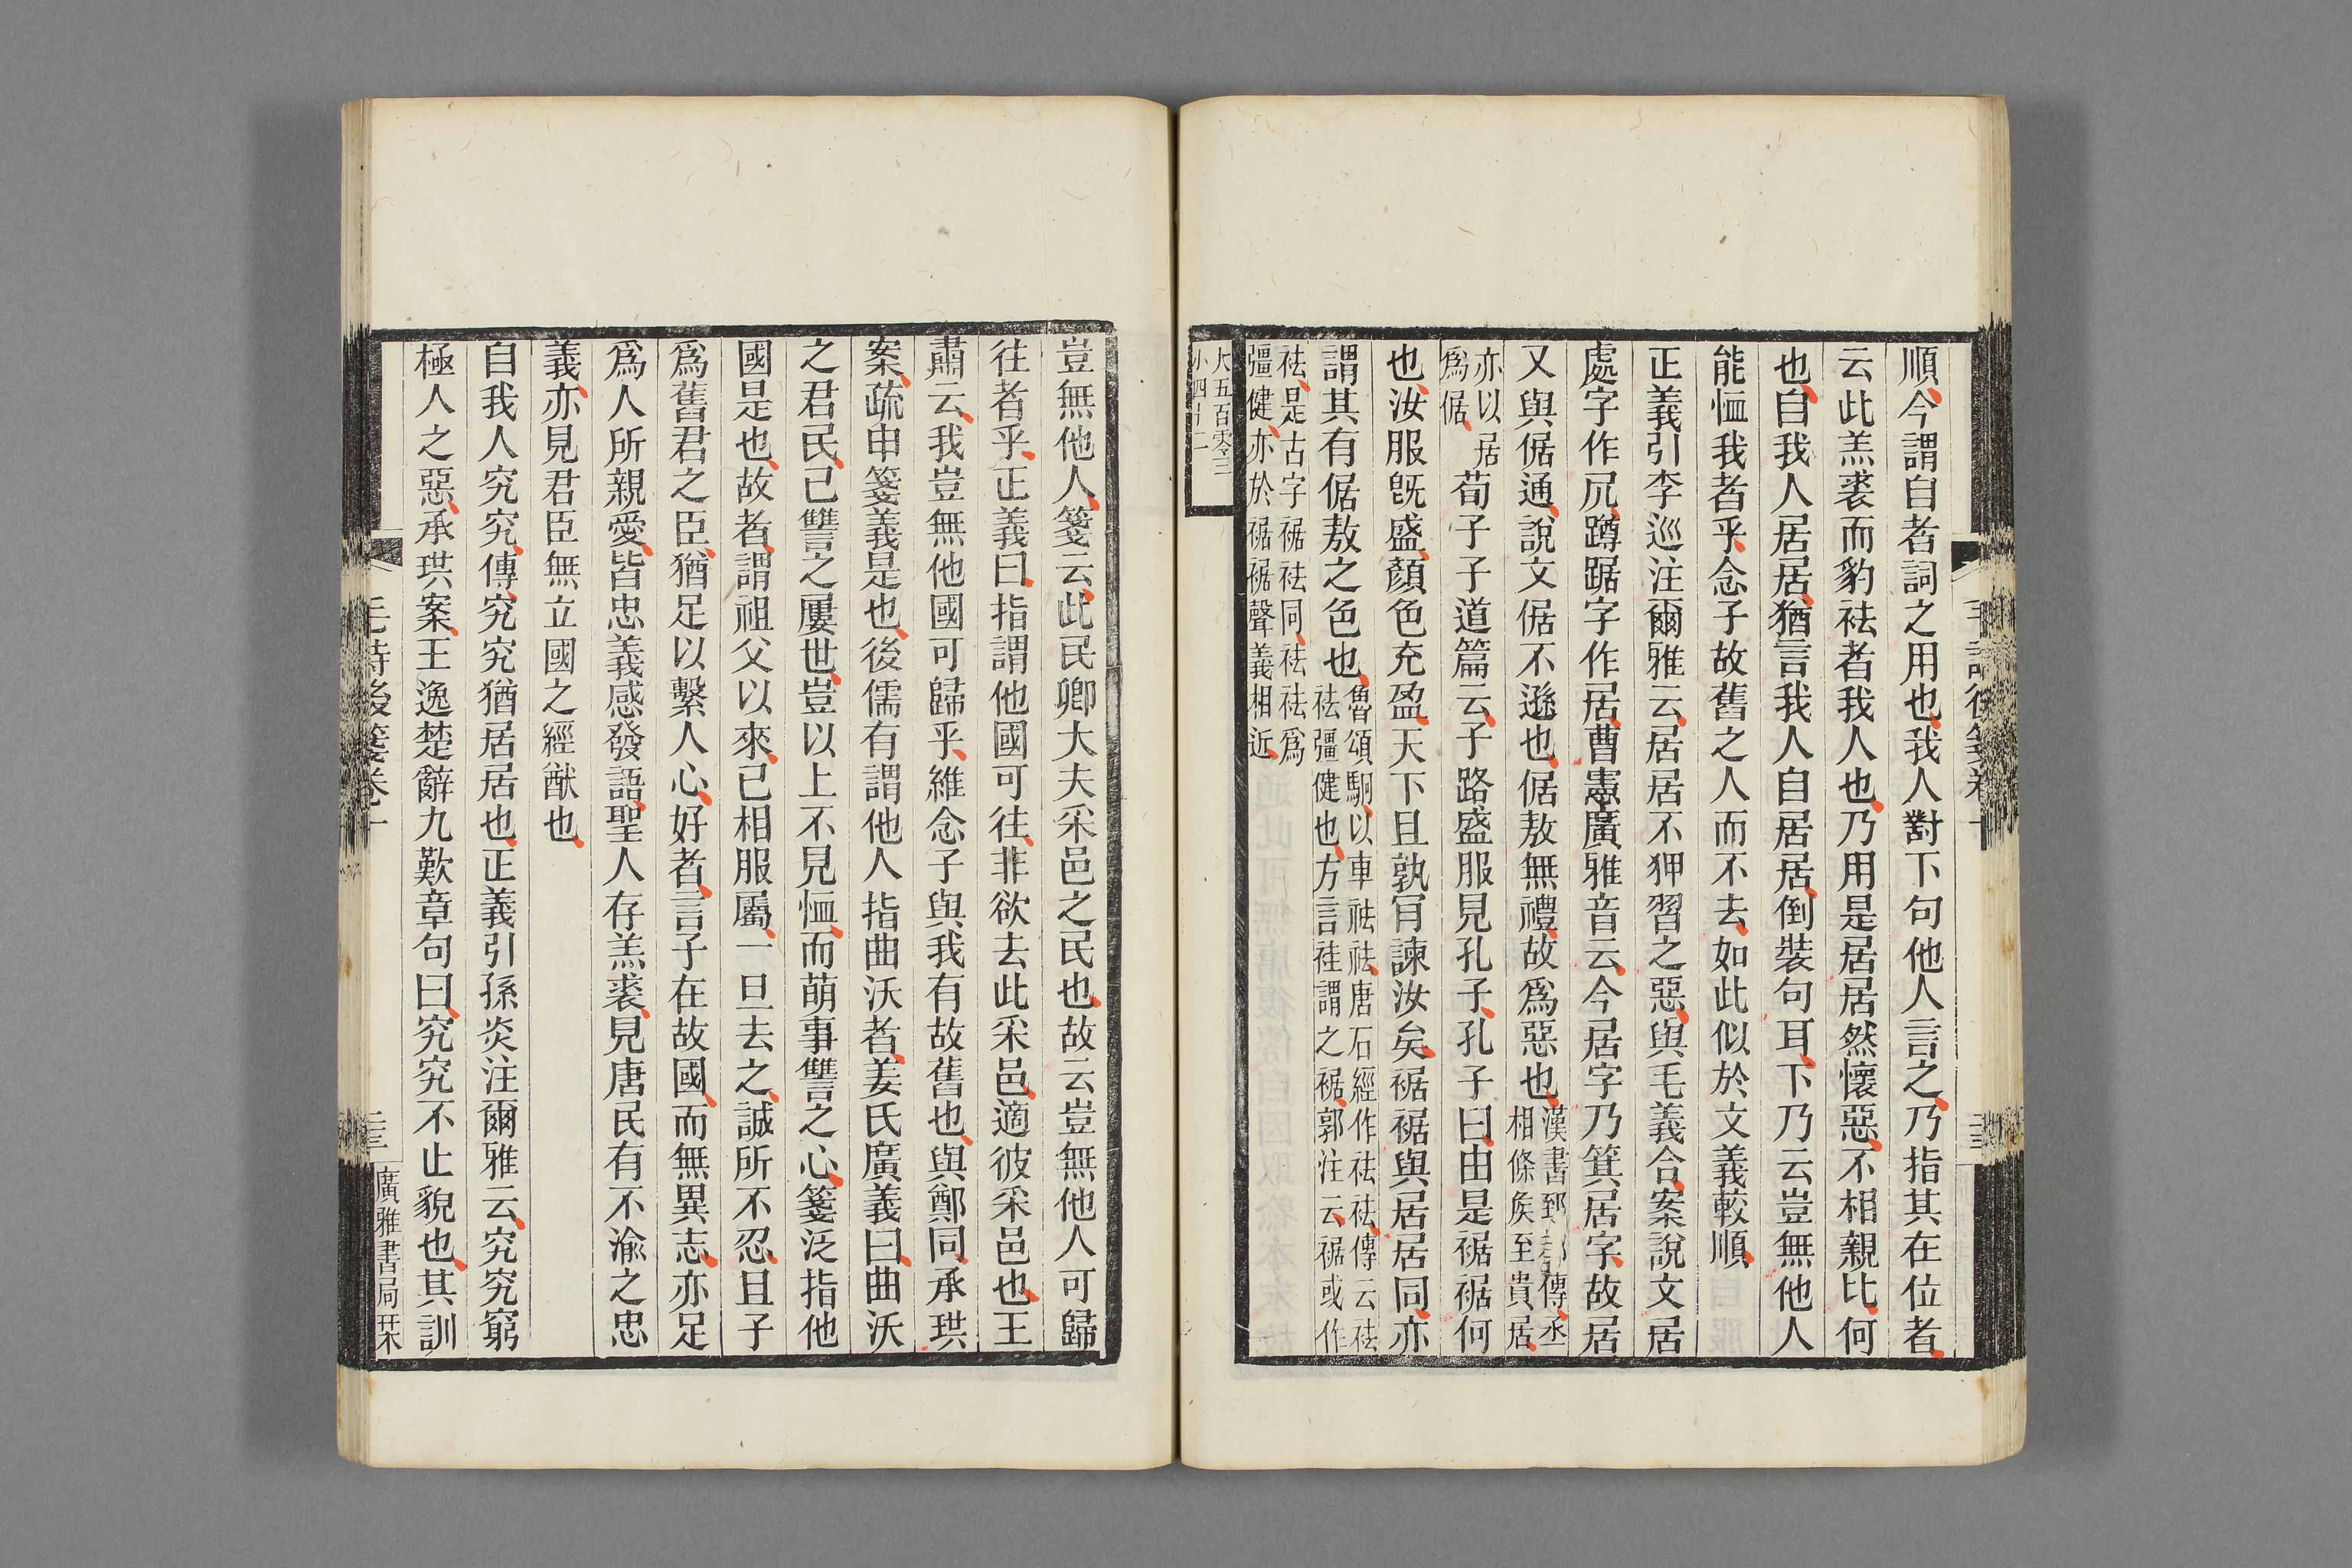 順今謂自者詞之用也我人對下句他人言之乃指其在位者
云此羔裘而豹袪者我人也乃用是居居然懷惡不相親比何
也自我人居居猶言我人自居居倒裝句耳下乃云豈無他人
能恤我者乎念子故舊之人而不去如此似於文義較順
正義引李巡注爾雅云居居不狎習之惡與毛義合案說文居
處字作凥蹲踞字作居曹憲廣雅音云今居字乃箕居字故居
又與倨通說文倨不遜也倨敖無禮故爲惡也
漢書郅都傳丞
相條矦至貴居
亦以居
爲倨
荀子子道篇云子路盛服見孔子孔子曰由是裾裾何
也汝服旣盛顏色充盈天下且孰肎諫汝矣裾裾與居居同亦
謂其有倨敖之色也
魯頌駉以車袪袪唐石經作祛祛傳云祛
祛彊健也方言袿謂之裾郭注云裾或作
袪是古字裾袪同袪袪爲
彊健亦於裾裾聲義相近
大五百零三
小四十二
毛詩後箋卷十
二三
豈無他人箋云此民卿大夫采邑之民也故云豈無他人可歸
往者乎正義曰指謂他國可往非欲去此采邑適彼采邑也王
肅云我豈無他國可歸乎維念子與我有故舊也與鄭同承珙
案疏申箋義是也後儒有謂他人指曲沃者姜氏廣義曰曲沃
之君民己讐之屢世豈以上不見恤而萌事讐之心箋泛指他
國是也故者謂祖父以來已相服屬一旦去之誠所不忍且子
爲舊君之臣猶足以繫人心好者言子在故國而無異志亦足
爲人所親愛皆忠義感發語聖人存羔裘見唐民有不渝之忠
義亦見君臣無立國之經猷也
自我人究究傳究究猶居居也正義引孫炎注爾雅云究究窮
極人之惡承珙案王逸楚辭九歎章句曰究究不止貌也其訓
毛詩後箋卷十
二三
廣雅書局栞